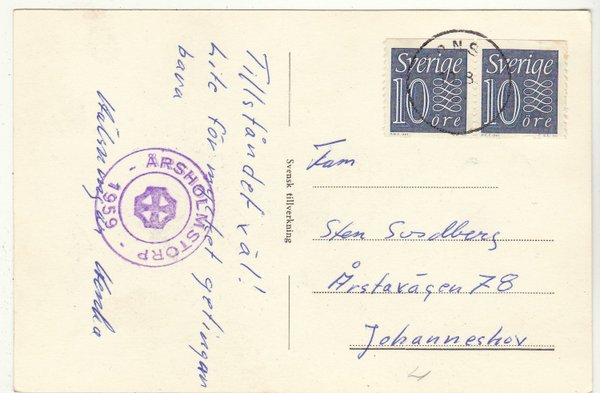 Tillståndet väl!
lite för mycket getingar
bara
Hälsningar
ÅRSHOLMSTORP
1959
Svensk tillverkning
Sverige
10 öre
Sverige
10 öre
Fam
Sten Svedberg
Årstavägen 78
Johanneshov
4